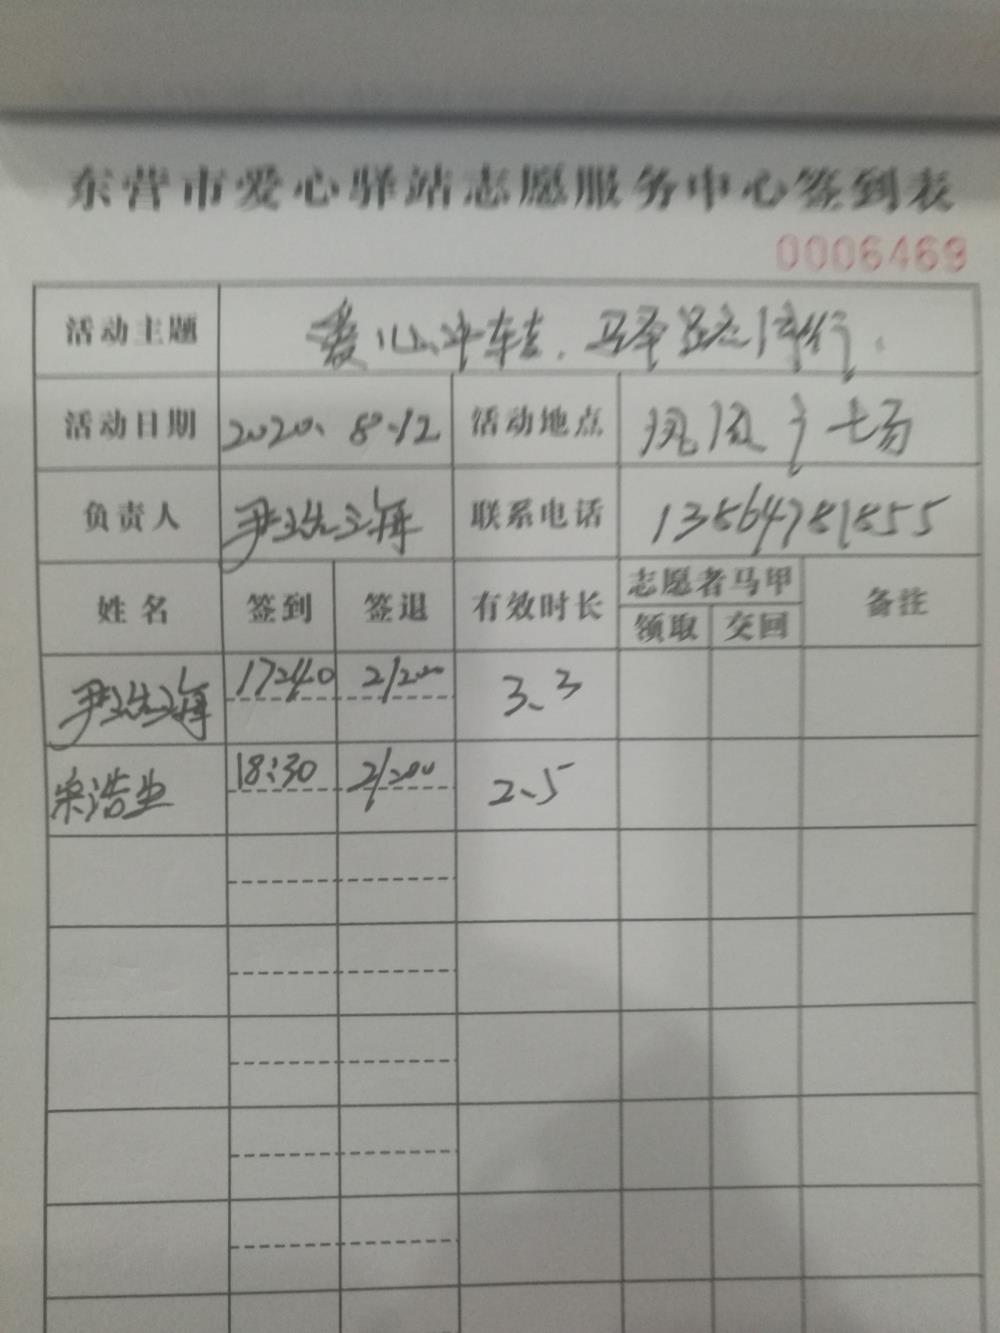 东营市爱心驿站志愿服务中心签到表
0006469
活动主题 爱心
活动日期 2020.8.12 活动地点 凤凰广场
负责人 尹 海 联系电话 13864781855
姓名 签到 签退 有效时长 志愿者马甲 备注
领取 交回
尹 海 17:40 21:00 3.3
浩 18:30 21:00 2.5